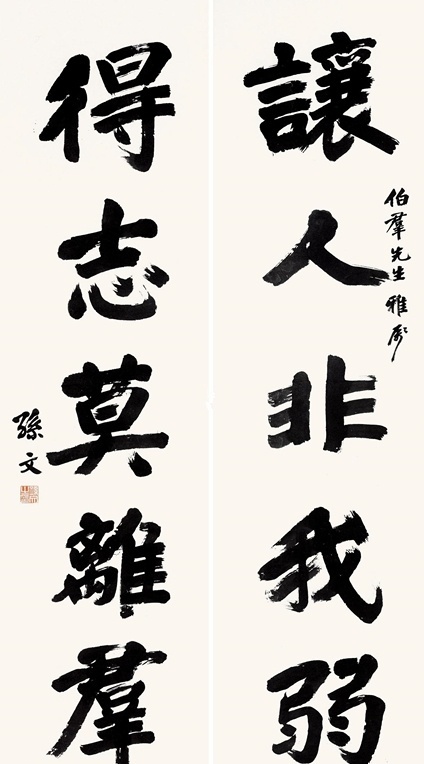 伯羣先生雅属
讓人非我弱
得志莫離羣
孫文